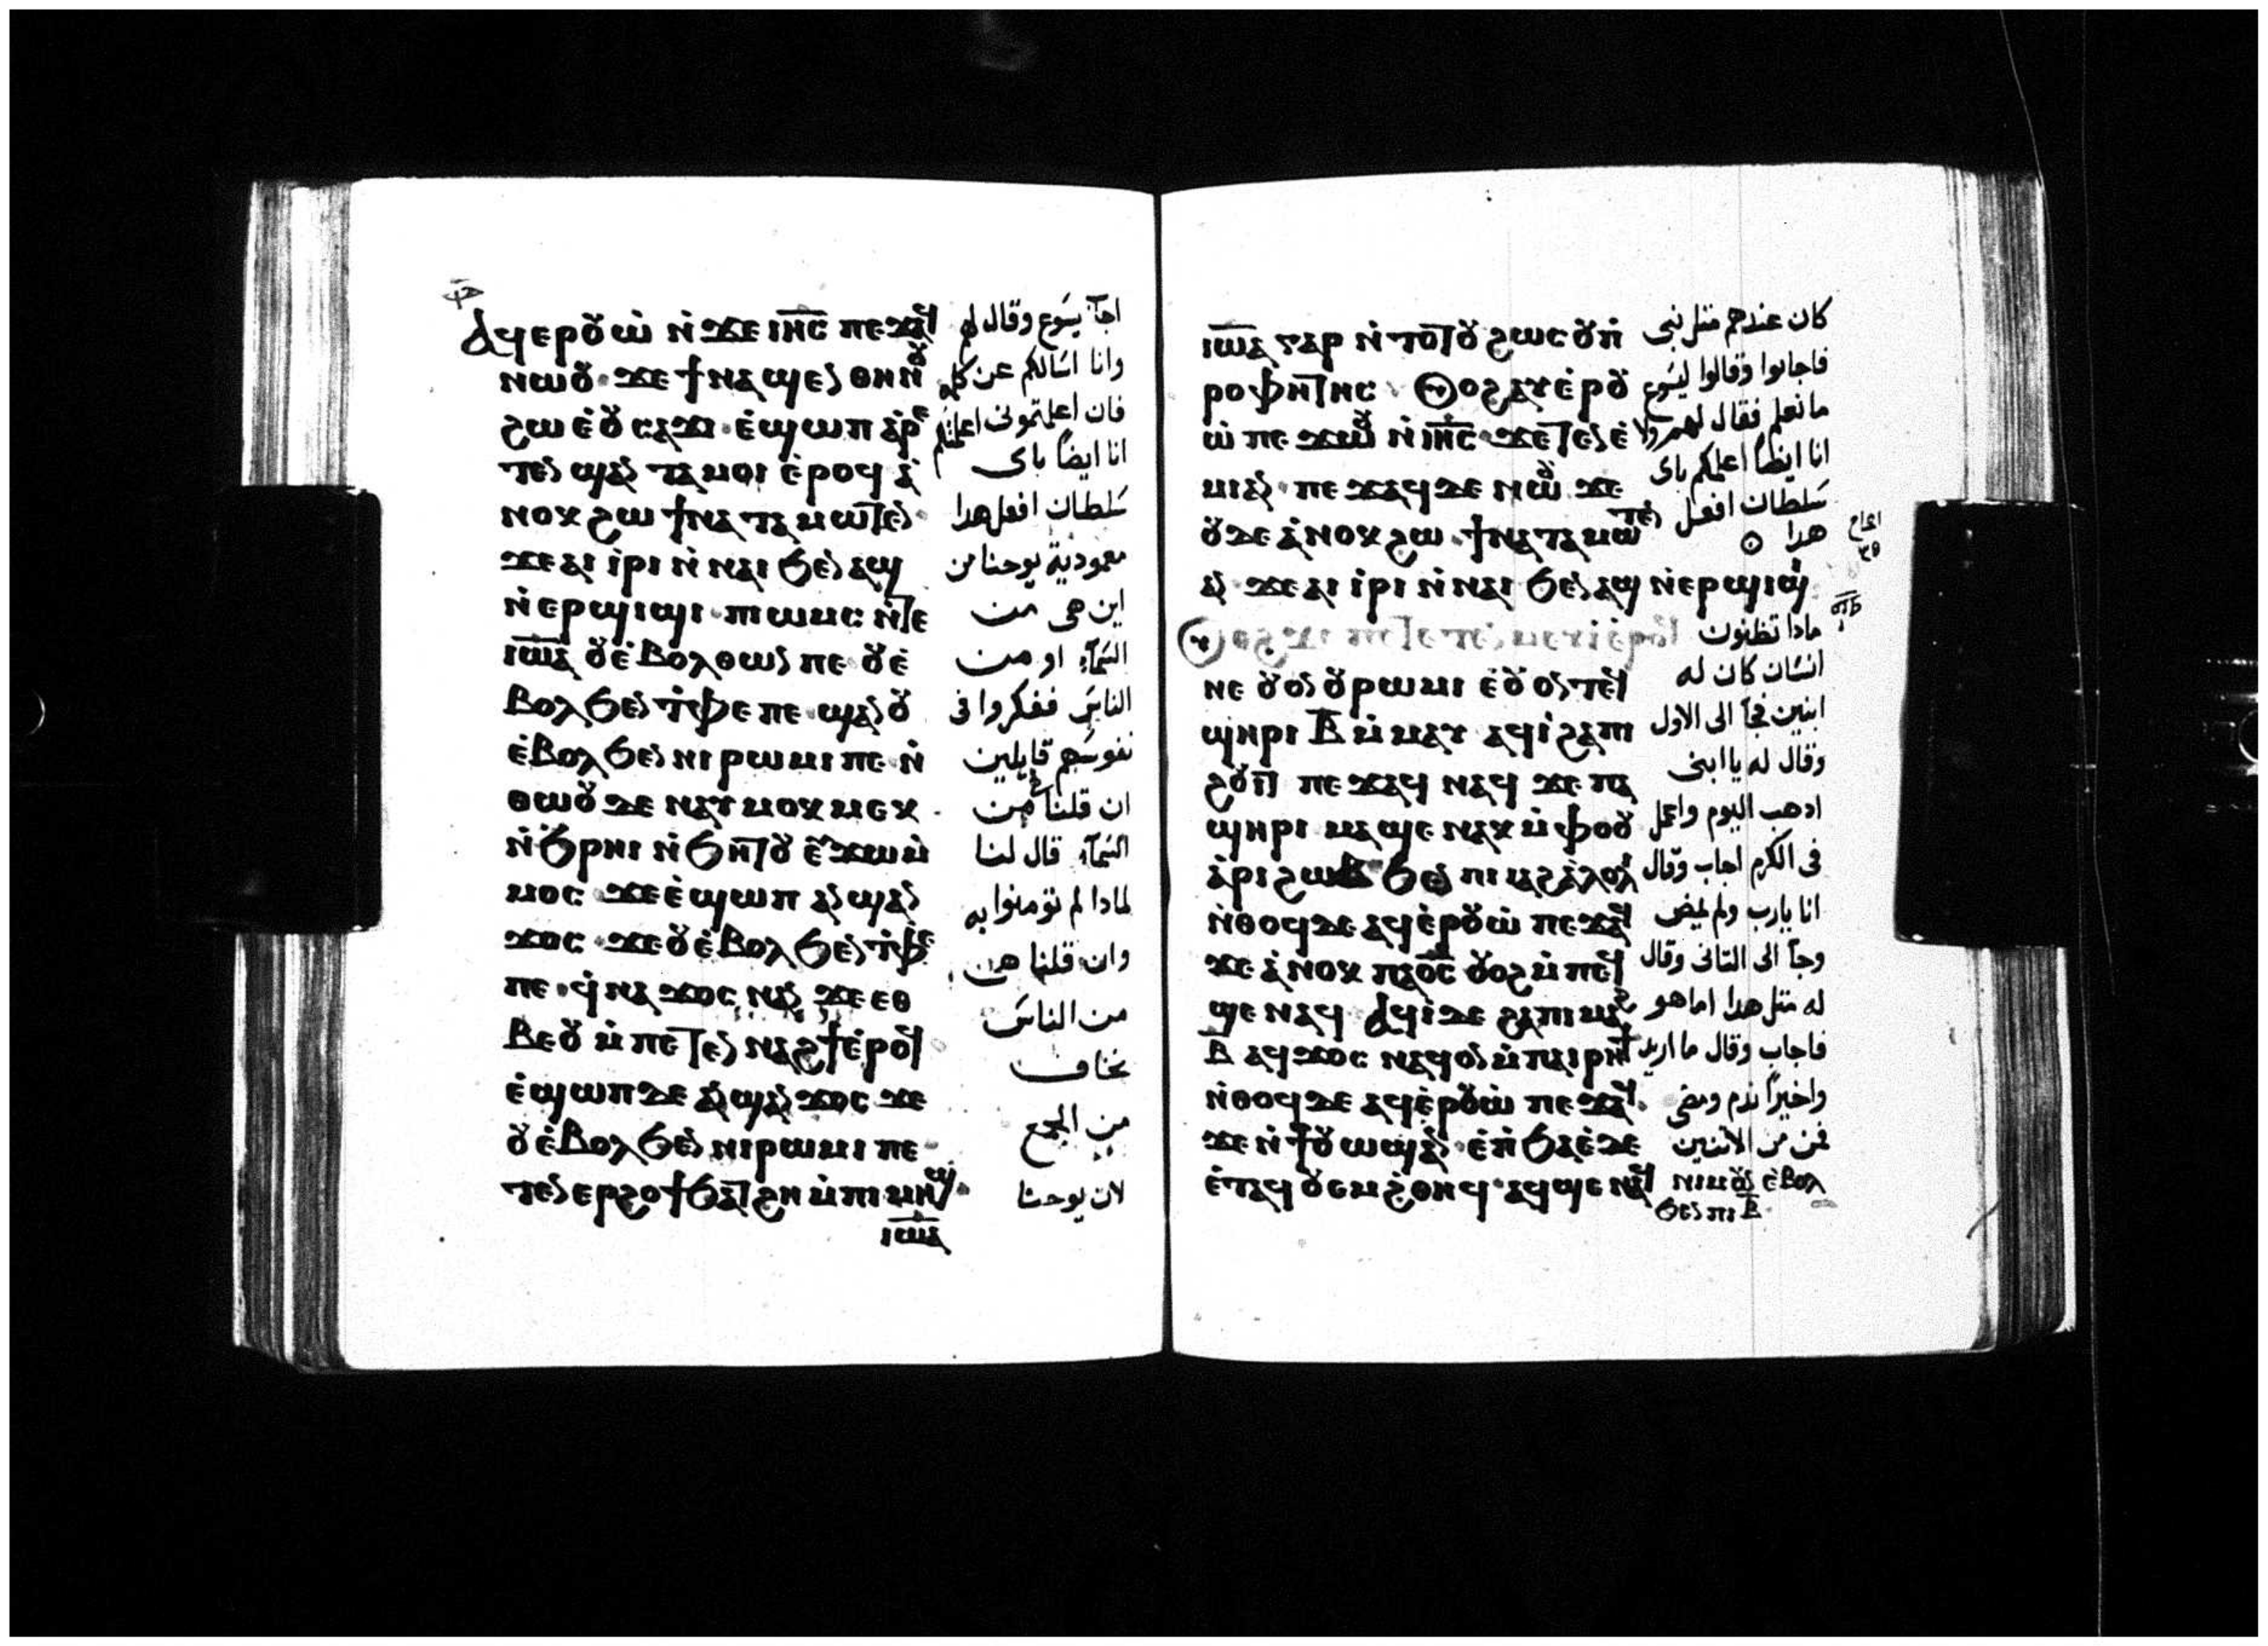 ⲁϥⲉⲣⲟⲩⲱ̇ ⲛ̇ϫⲉ ⲓⲏ̅ⲥ̅ ⲡⲉϫⲁϥ
ⲛⲱⲟⲩ · ϫⲉ ϯⲛⲁϣⲉⲛ ⲑⲏⲛⲟⲩ
ϩⲱ ⲉ̇ⲟⲩⲥⲁϫⲓ · ⲉ̇ϣⲱⲡ ⲁⲣⲉ
ⲧⲉⲛϣⲁⲛ ⲧⲁⲙⲟⲓ ⲉ̇ⲣⲟϥ ⲁ̇
ⲛⲟⲕ ϩⲱ ϯⲛⲁⲧⲁⲙⲱⲧⲉⲛ ·
ϫⲉ ⲁⲓ ⲓ̇ⲣⲓ ⲛ̇ⲛⲁⲓ ϧⲉⲛ ⲁϣ
ⲛ̇ⲉⲣϣⲓϣⲓ · ⲡⲓⲱⲙⲥ ⲛ̇ⲧⲉ
ⲓⲱ̅ⲁ̅ ⲟⲩⲉ̇ⲃⲟⲗ ⲑⲱⲛ ⲡⲉ · ⲟⲩⲉ̇
ⲃⲟⲗ ϧⲉⲛ ⲧ̇ⲫⲉ ⲡⲉ · ϣⲁⲛ ⲟⲩ
ⲉ̇ⲃⲟⲗ ϧⲉⲛ ⲛⲓⲣⲱⲙⲓ ⲡⲉ · ⲛ̇
ⲑⲱⲟⲩ ⲇⲉ ⲛⲁⲩⲙⲟⲕⲙⲉⲕ ·
ⲛ̇ϧⲣⲏⲓ ⲛ̇ϧⲏⲧⲟⲩ ⲉⲩϫⲱ ⲙ̇
ⲙⲟⲥ · ϫⲉ ⲉ̇ϣⲱⲡ ⲁⲛϣⲁⲛ
ϫⲟⲥ · ϫⲉ ⲟⲩⲉ̇ⲃⲟⲗ ϧⲉⲛ ⲧ̇ⲫⲉ
ⲡⲉ · ϥ̇ⲛⲁϫⲟⲥ ⲛⲁⲛ ϫⲉ ⲉⲑ
ⲃⲉⲟⲩ ⲙ̇ⲡⲉⲧⲉⲛⲛⲁϩϯ ⲉ̇ⲣⲟϥ
ⲉ̇ϣⲱⲡ ⲇⲉ ⲁⲛϣⲁⲛϫⲟⲥ ϫⲉ
ⲟⲩⲉ̇ⲃⲟⲗ ϧⲉⲛ ⲛⲓⲣⲱⲙⲓ ⲡⲉ ·
ⲧⲉⲛⲉⲣϩⲟϯ ϧⲁⲧϩⲏ ⲙ̇ⲡⲓⲙⲏϣ ·
ⲓⲱ̅ⲁ̅
اجآب يسوع وقال لهم
وانا اسالكم عن كلمه
فان اعلمتمونى اعلمتكم
انا ايضاً باى
سلطان افعل هدا
معمودية يوحنا من
اين هى من
السمآء او من
الناس ففكروا فى
نفوسهم قايلين
ان قلنا من
السمآء قال لنا
لمادا لم تومنوا به
وان قلنا هى
من الناس
نخاف
من الجمع
لان يوحنا
ⲓⲱ̅ⲁ̅ ⲅⲁⲣ ⲛ̇ⲧⲟⲧⲟⲩ ϩⲱⲥ ⲟⲩⲡ̇
ⲣⲟⲫⲏⲧⲏⲥ · ⲟⲩⲟϩ ⲁⲩⲉ̇ⲣⲟⲩ
ⲱ̇ ⲡⲉϫⲱⲟⲩ ⲛ̇ⲓⲏ̅ⲥ̅ · ϫⲉ ⲧⲉⲛⲉ̇
ⲙⲓ ⲁⲛ · ⲡⲉϫⲁϥ ⲇⲉ ⲛⲱⲟⲩ ϫⲉ
ⲟⲩⲇⲉ ⲁ̇ⲛⲟⲕ ϩⲱ · ϯⲛⲁⲧⲁⲙⲱⲧⲉⲛ
ⲁⲛ · ϫⲉ ⲁⲓ ⲓ̇ⲣⲓ ⲛ̇ⲛⲁⲓ ϧⲉⲛ ⲁϣ ⲛ̇ⲉⲣϣⲓϣⲓ
ⲛⲉ ⲟⲩⲟⲛ ⲟⲩⲣⲱⲙⲓ ⲉ̇ⲟⲩⲟⲛⲧⲉϥ
ϣⲏⲣⲓ ⲃ̅ ⲙ̇ⲙⲁⲩ ⲁϥⲓ̇ ϩⲁ ⲡⲓ
ϩⲟⲩⲓⲧ ⲡⲉϫⲁϥ ⲛⲁϥ ϫⲉ ⲡⲁ
ϣⲏⲣⲓ ⲙⲁϣⲉ ⲛⲁⲕ ⲙ̇ⲫⲟⲟⲩ
ⲁ̇ⲣⲓϩⲱⲃ ϧⲉⲛ ⲡⲓⲓⲁϩⲁ̇ⲗⲟⲗⲓ
ⲛ̇ⲑⲟϥ ⲇⲉ ⲁϥⲉ̇ⲣⲟⲩⲱ̇ ⲡⲉϫⲁϥ
ϫⲉ ⲁ̇ⲛⲟⲕ ⲡⲁⲟ̅ⲥ̅ ⲟⲩⲟϩ ⲙ̇ⲡⲉϥ
ϣⲉ ⲛⲁϥ ⲁϥⲓ̇ ⲇⲉ ϩⲁ ⲡⲓⲙⲁϩ
ⲃ̅ ⲁϥϫⲟⲥ ⲛⲁϥ ⲟⲛ ⲙ̇ⲡⲁⲓⲣⲏϯ
ⲛ̇ⲑⲟϥ ⲇⲉ ⲁϥⲉ̇ⲣⲟⲩⲱ̇ ⲡⲉϫⲁϥ ·
ϫⲉ ⲛ̇ϯⲟⲩⲱϣ ⲁⲛ · ⲉ̇ⲡ̇ϧⲁⲉ̇ ⲇⲉ
ⲉ̇ⲧⲁϥⲟⲩⲉⲙϩ̇ⲑⲏϥ · ⲁϥϣⲉ ⲛⲁϥ ⲛⲓⲙ ⲟⲩⲛ ⲉ̇ⲃⲟⲗ
ϧⲉⲛ ⲡⲓ ⲃ̅
كان عندهم مثل نبى
فاجابوا وقالوا ليسوع
ما نعلم فقال لهم ولا
انا ايضاً اعلمكم باى
سلطان افعل
هدا
مادا تظنون
انسان كان له
ابنين فجآ الى الاول
وقال له يا ابنى
ادهب اليوم واعمل
فى الكرم اجاب وقال
انا يارب ولم يمض
وجآ الى التانى وقال
له مثل هدا اما هو
فاجاب وقال ما اريد
واخيراً ندم ومضى
فمن من الاتنين